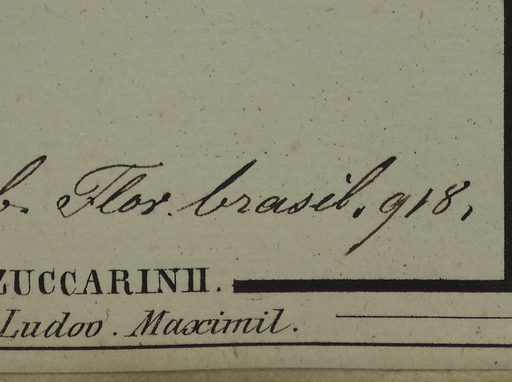 b. Flor. brasil. 918.
ZUCCARINII.
Ludov. Maximil.